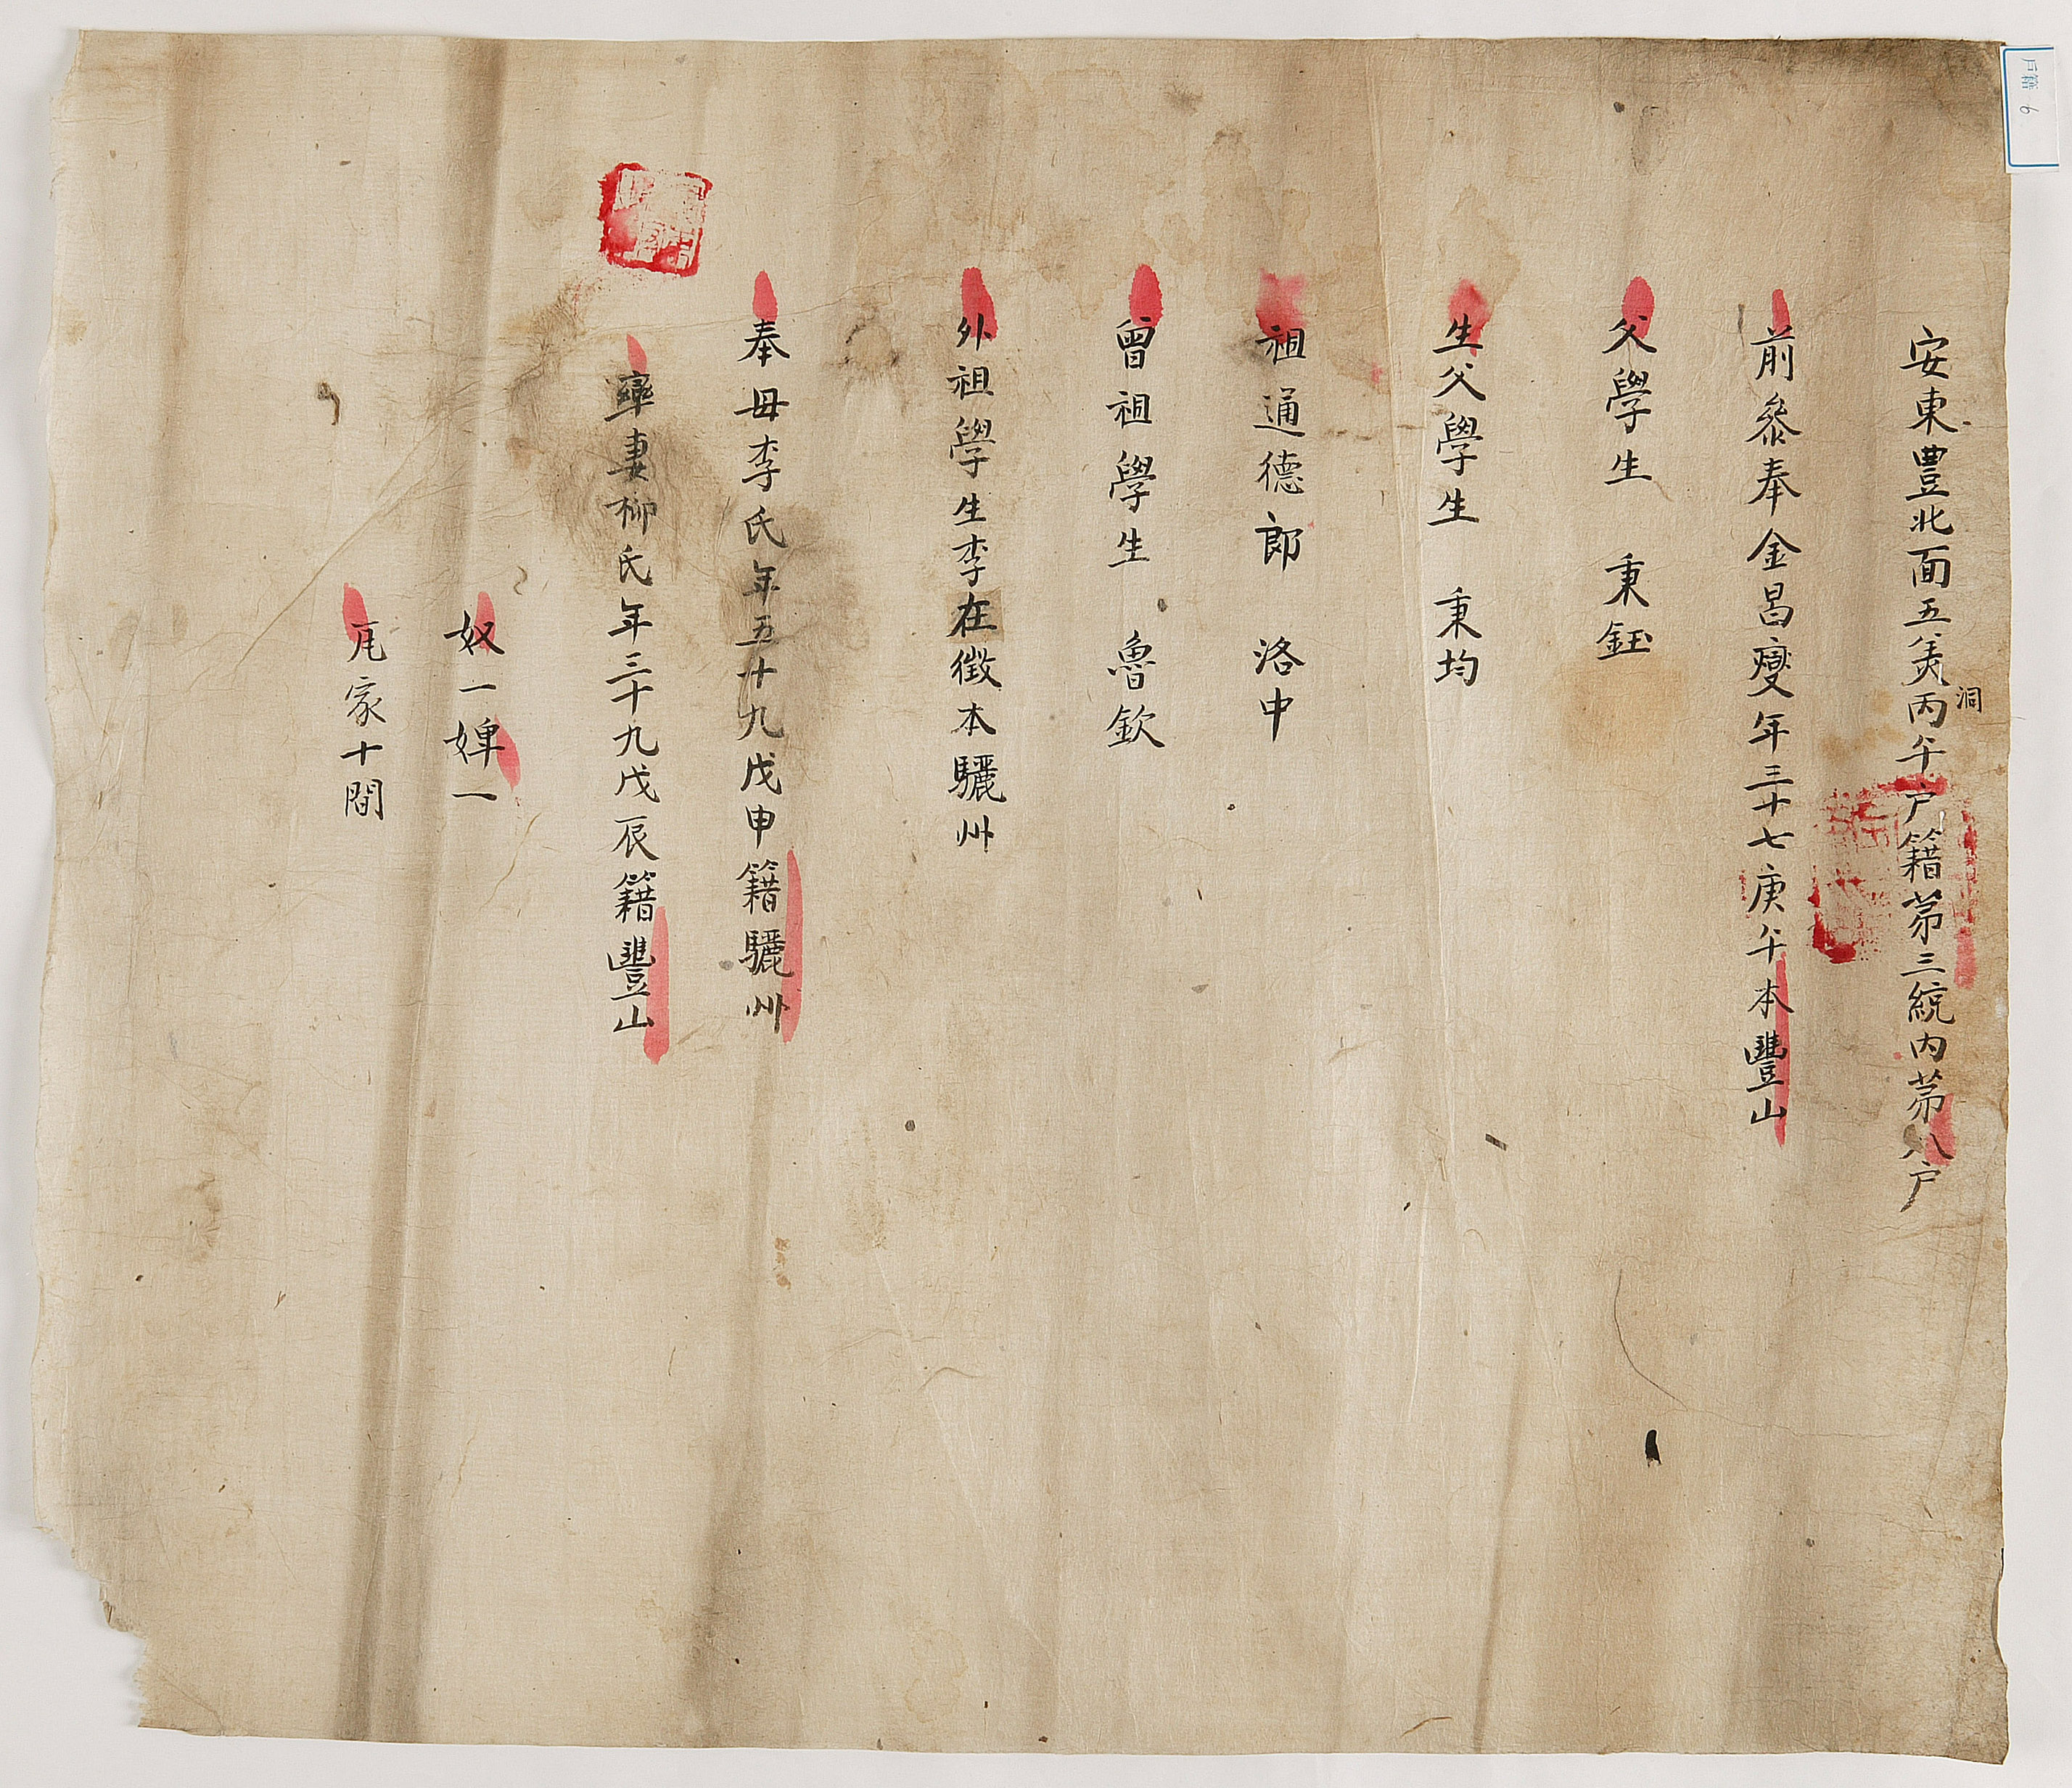 安東豊北面五美洞丙午戶籍苐三統內苐八戶
前叅奉金昌燮年三十七庚午本豐山
父學生 秉鈺
生父學生 秉均
祖通德郎 洛中
曾祖學生 魯欽
外祖學生李在徵本驪州
奉母李氏年五十九戊申籍驪州
率妻柳氏年三十九戊辰籍豐山
奴一婢一
瓦家十間
戶籍 6